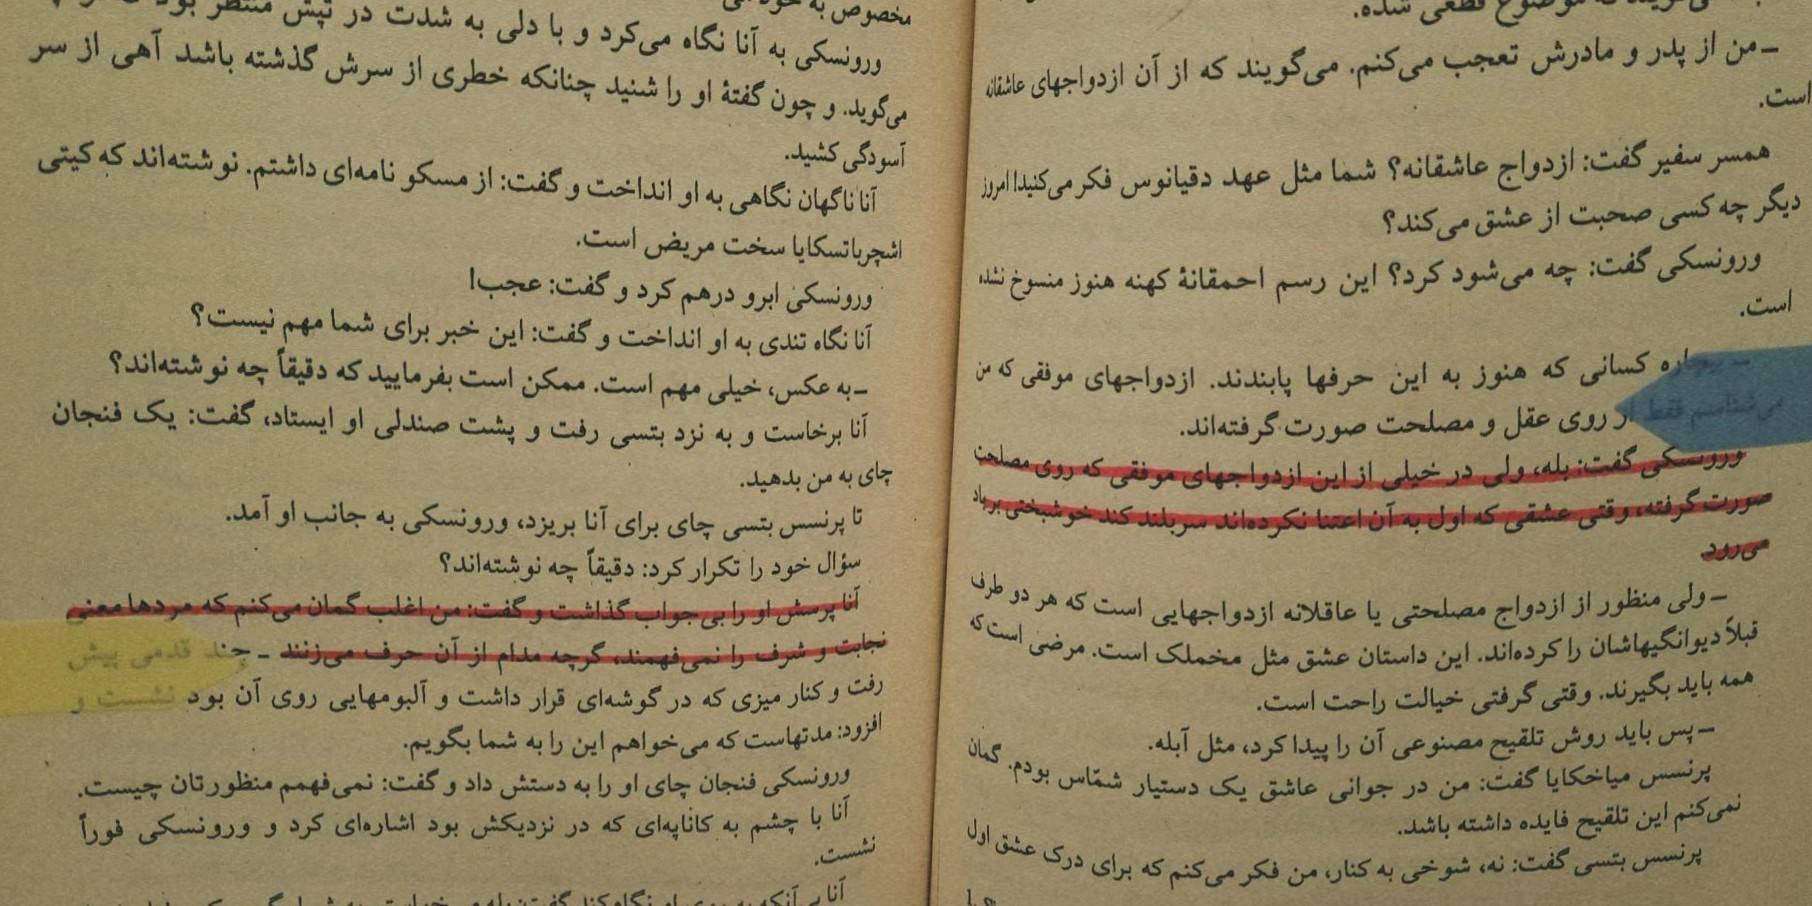 می‌گویند که موضوع قطعی شده.
ـ من از پدر و مادرش تعجب می‌کنم. می‌گویند که از آن ازدواجهای عاشقانه
است.
همسر سفیر گفت: ازدواج عاشقانه؟ شما مثل عهد دقیانوس فکر می‌کنید! امروز
دیگر چه کسی صحبت از عشق می‌کند؟
ورونسکی گفت: چه می‌شود کرد؟ این رسم احمقانهٔ کهنه هنوز منسوخ نشده
است.
ـ بیچاره کسانی که هنوز به این حرفها پابندند. ازدواجهای موفقی که من
می‌شناسم فقط از روی عقل و مصلحت صورت گرفته‌اند.
ورونسکی گفت: بله، ولی در خیلی از این ازدواجهای موفقی که روی مصلحت
صورت گرفته، وقتی عشقی که اول به آن اعتنا نکرده‌اند سربلند کند خوشبختی برباد
می‌رود.
ـ ولی منظور از ازدواج مصلحتی یا عاقلانه ازدواجهایی است که هر دو طرف
قبلاً دیوانگیهاشان را کرده‌اند. این داستان عشق مثل مخملک است. مرضی است که
همه باید بگیرند. وقتی گرفتی خیالت راحت است.
ـ پس باید روش تلقیح مصنوعی آن را پیدا کرد، مثل آبله.
پرنسس میاخکایا گفت: من در جوانی عاشق یک دستیار شمّاس بودم. گمان
نمی‌کنم این تلقیح فایده داشته باشد.
پرنسس بتسی گفت: نه، شوخی به کنار، من فکر می‌کنم که برای درک عشق اول
مخصوص به خود
ورونسکی به آنا نگاه می‌کرد و با دلی به شدت در تپش منتظر بود
می‌گوید. و چون گفتهٔ او را شنید چنانکه خطری از سرش گذشته باشد آهی از سر
آسودگی کشید.
آنا ناگهان نگاهی به او انداخت و گفت: از مسکو نامه‌ای داشتم. نوشته‌اند که کیتی
اشچرباتسکایا سخت مریض است.
ورونسکی ابرو درهم کرد و گفت: عجب!
آنا نگاه تندی به او انداخت و گفت: این خبر برای شما مهم نیست؟
ـ به عکس، خیلی مهم است. ممکن است بفرمایید که دقیقاً چه نوشته‌اند؟
آنا برخاست و به نزد بتسی رفت و پشت صندلی او ایستاد، گفت: یک فنجان
چای به من بدهید.
تا پرنسس بتسی چای برای آنا بریزد، ورونسکی به جانب او آمد.
سؤال خود را تکرار کرد: دقیقاً چه نوشته‌اند؟
آنا پرسش او را بی‌جواب گذاشت و گفت: من اغلب گمان می‌کنم که مردها معنی
نجابت و شرف را نمی‌فهمند، گرچه مدام از آن حرف می‌زنند ـ چند قدمی پیش
رفت و کنار میزی که در گوشه‌ای قرار داشت و آلبومهایی روی آن بود نشست و
افزود: مدتهاست که می‌خواهم این را به شما بگویم.
ورونسکی فنجان چای او را به دستش داد و گفت: نمی‌فهمم منظورتان چیست.
آنا با چشم به کاناپه‌ای که در نزدیکش بود اشاره‌ای کرد و ورونسکی فوراً
نشست.
آنا بی‌آنکه